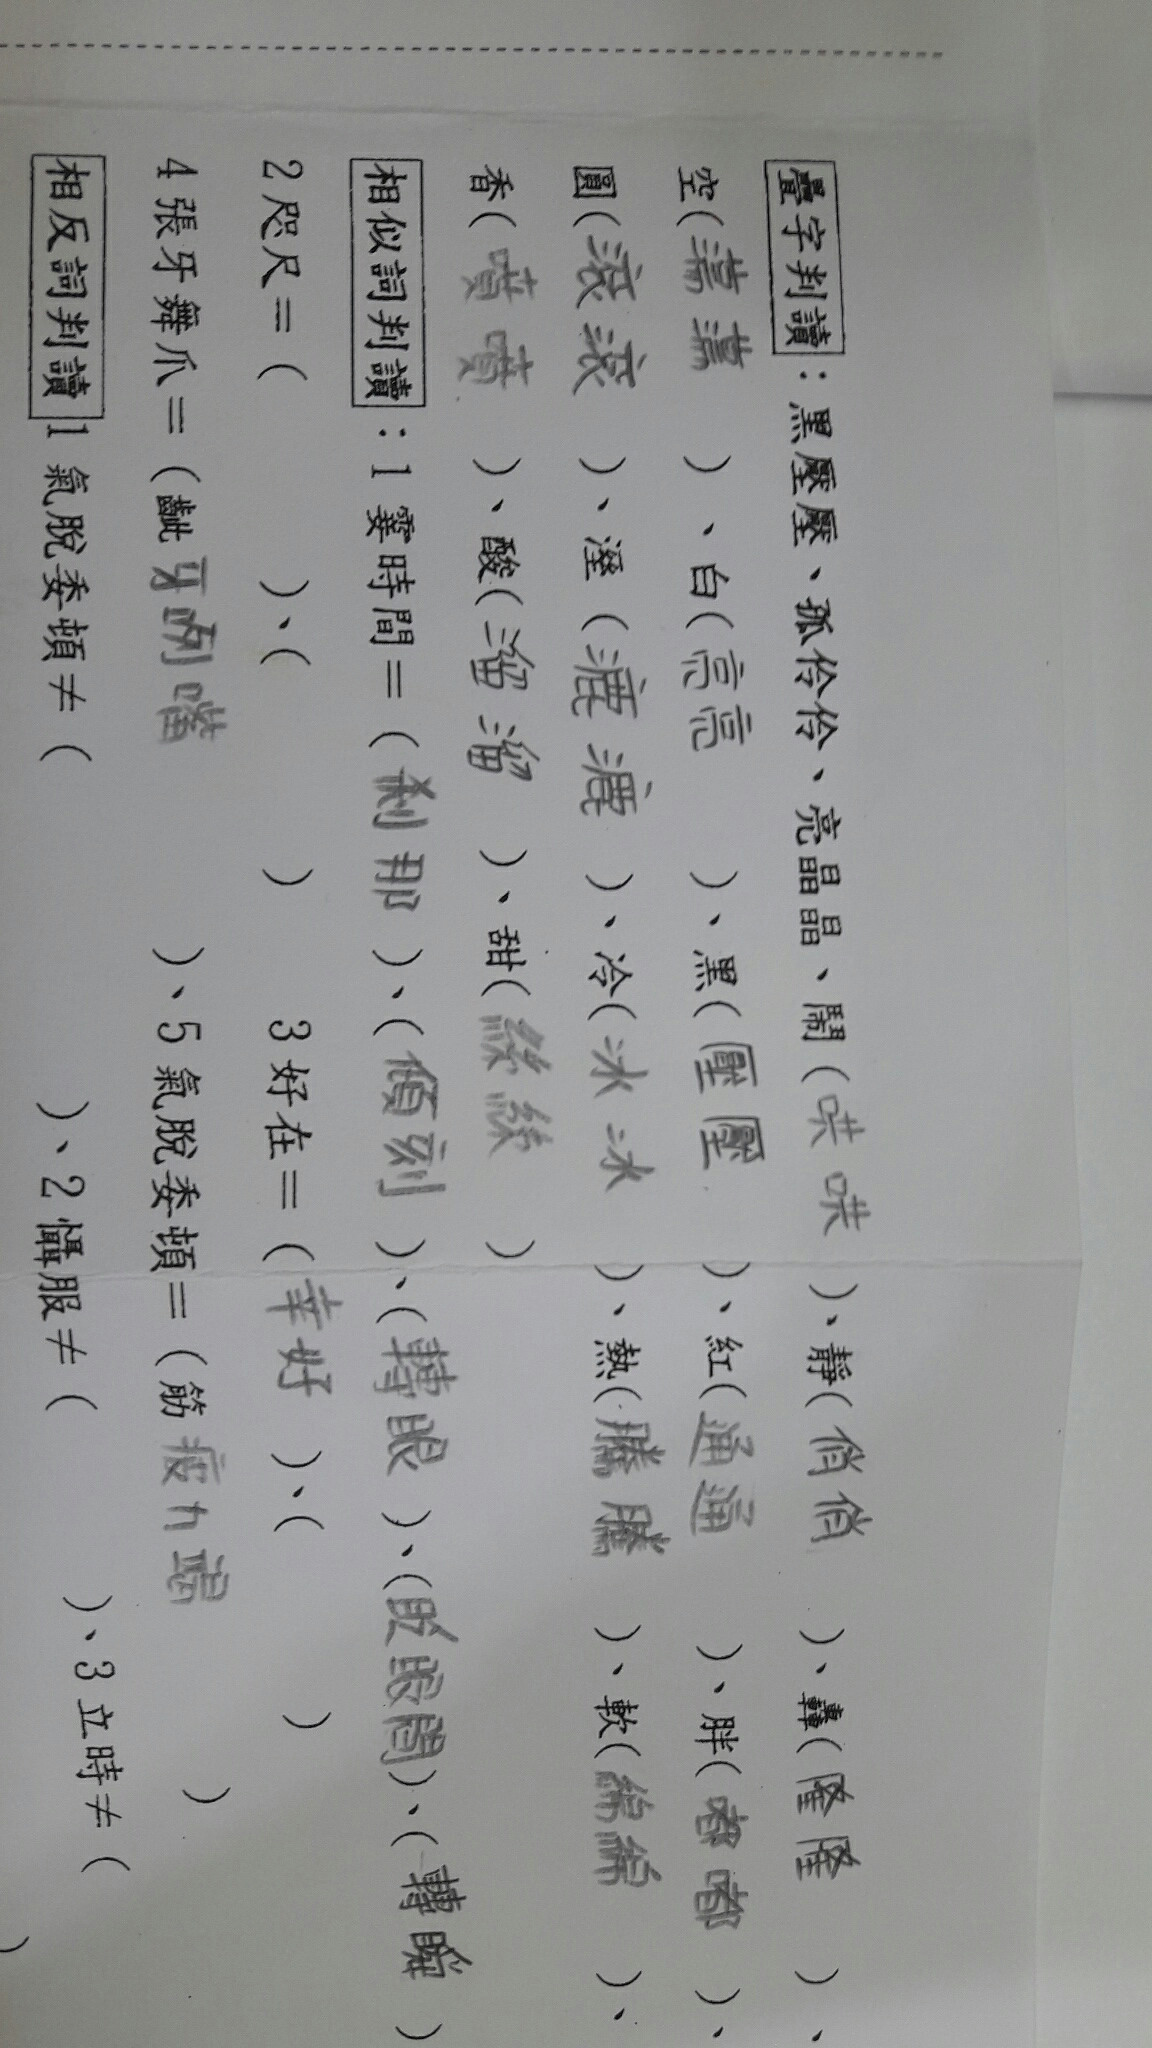 疊字判讀：黑壓壓、孤伶伶、亮晶晶、鬧(哄哄)、靜(俏俏)、轟(隆隆)、
空(蕩蕩)、白(亮亮)、黑(壓壓)、紅(通通)、胖(嘟嘟)、
圓(滾滾)、溼(漉漉)、冷(冰冰)、熱(騰騰)、軟(綿綿)、
香(噴噴)、酸(溜溜)、甜(絲絲)
相似詞判讀：1霎時間＝(剎那)、(傾刻)、(轉眼)、(眨眼間)、(轉瞬)
2咫尺＝( )、( ) 3好在＝(幸好)、( )
4張牙舞爪＝(齜牙咧嘴)、5氣脫委頓＝(筋疲力竭)
相反詞判讀1氣脫委頓≠( )、2懾服≠( )、3立時≠( )